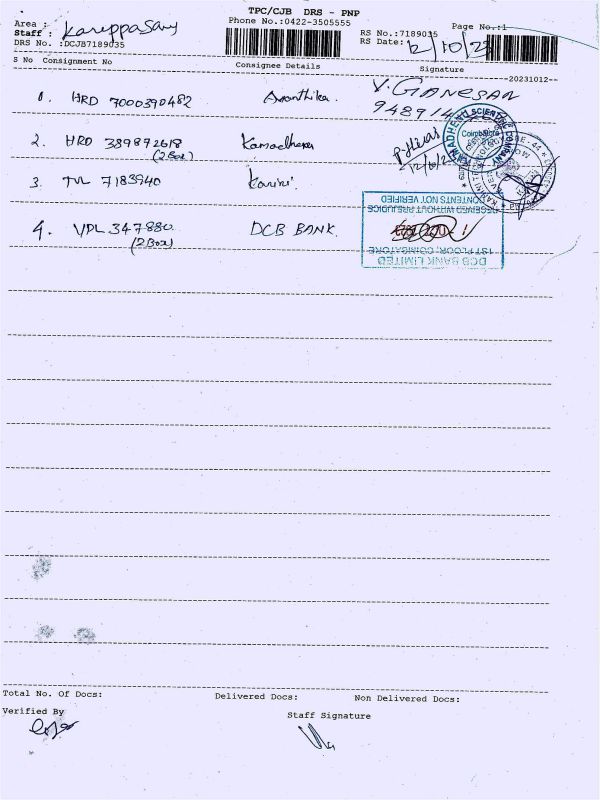 TPC/CJB DRS - PNP
Area :
Phone No.:0422-3505555
Page No.:1
Staff : Karuppasamy
RS No.:7189035
DRS No. :DCJB7189035
RS Date: 12/10/23
S No Consignment No Consignee Details Signature
20231012
1. HRD 7000390482 Ananthika. V. GANESAN
94891
2. HRD 389872618 Kamadhenu
(2 Box)
KAMADHENU SCIENTIFIC COMPANY
Coimbatore
12/10/2
3. TVL 7183940
4. VPL 347880. DCB BANK.
(2 Box)
DCB BANK LIMITED
1ST FLOOR, COIMBATORE
RECEIVED WITHOUT PREJUDICE
CONTENTS NOT VERIFIED
Total No. Of Docs: Delivered Docs: Non Delivered Docs:
Verified By
Staff Signature